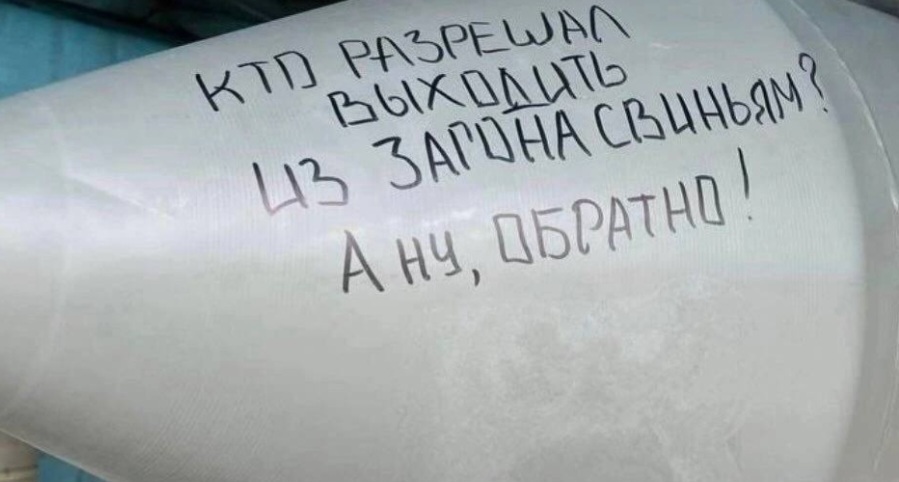 КТО РАЗРЕШАЛ
ВЫХОДИТЬ
ИЗ ЗАГОНА СВИНЬЯМ?
А НУ, ОБРАТНО!